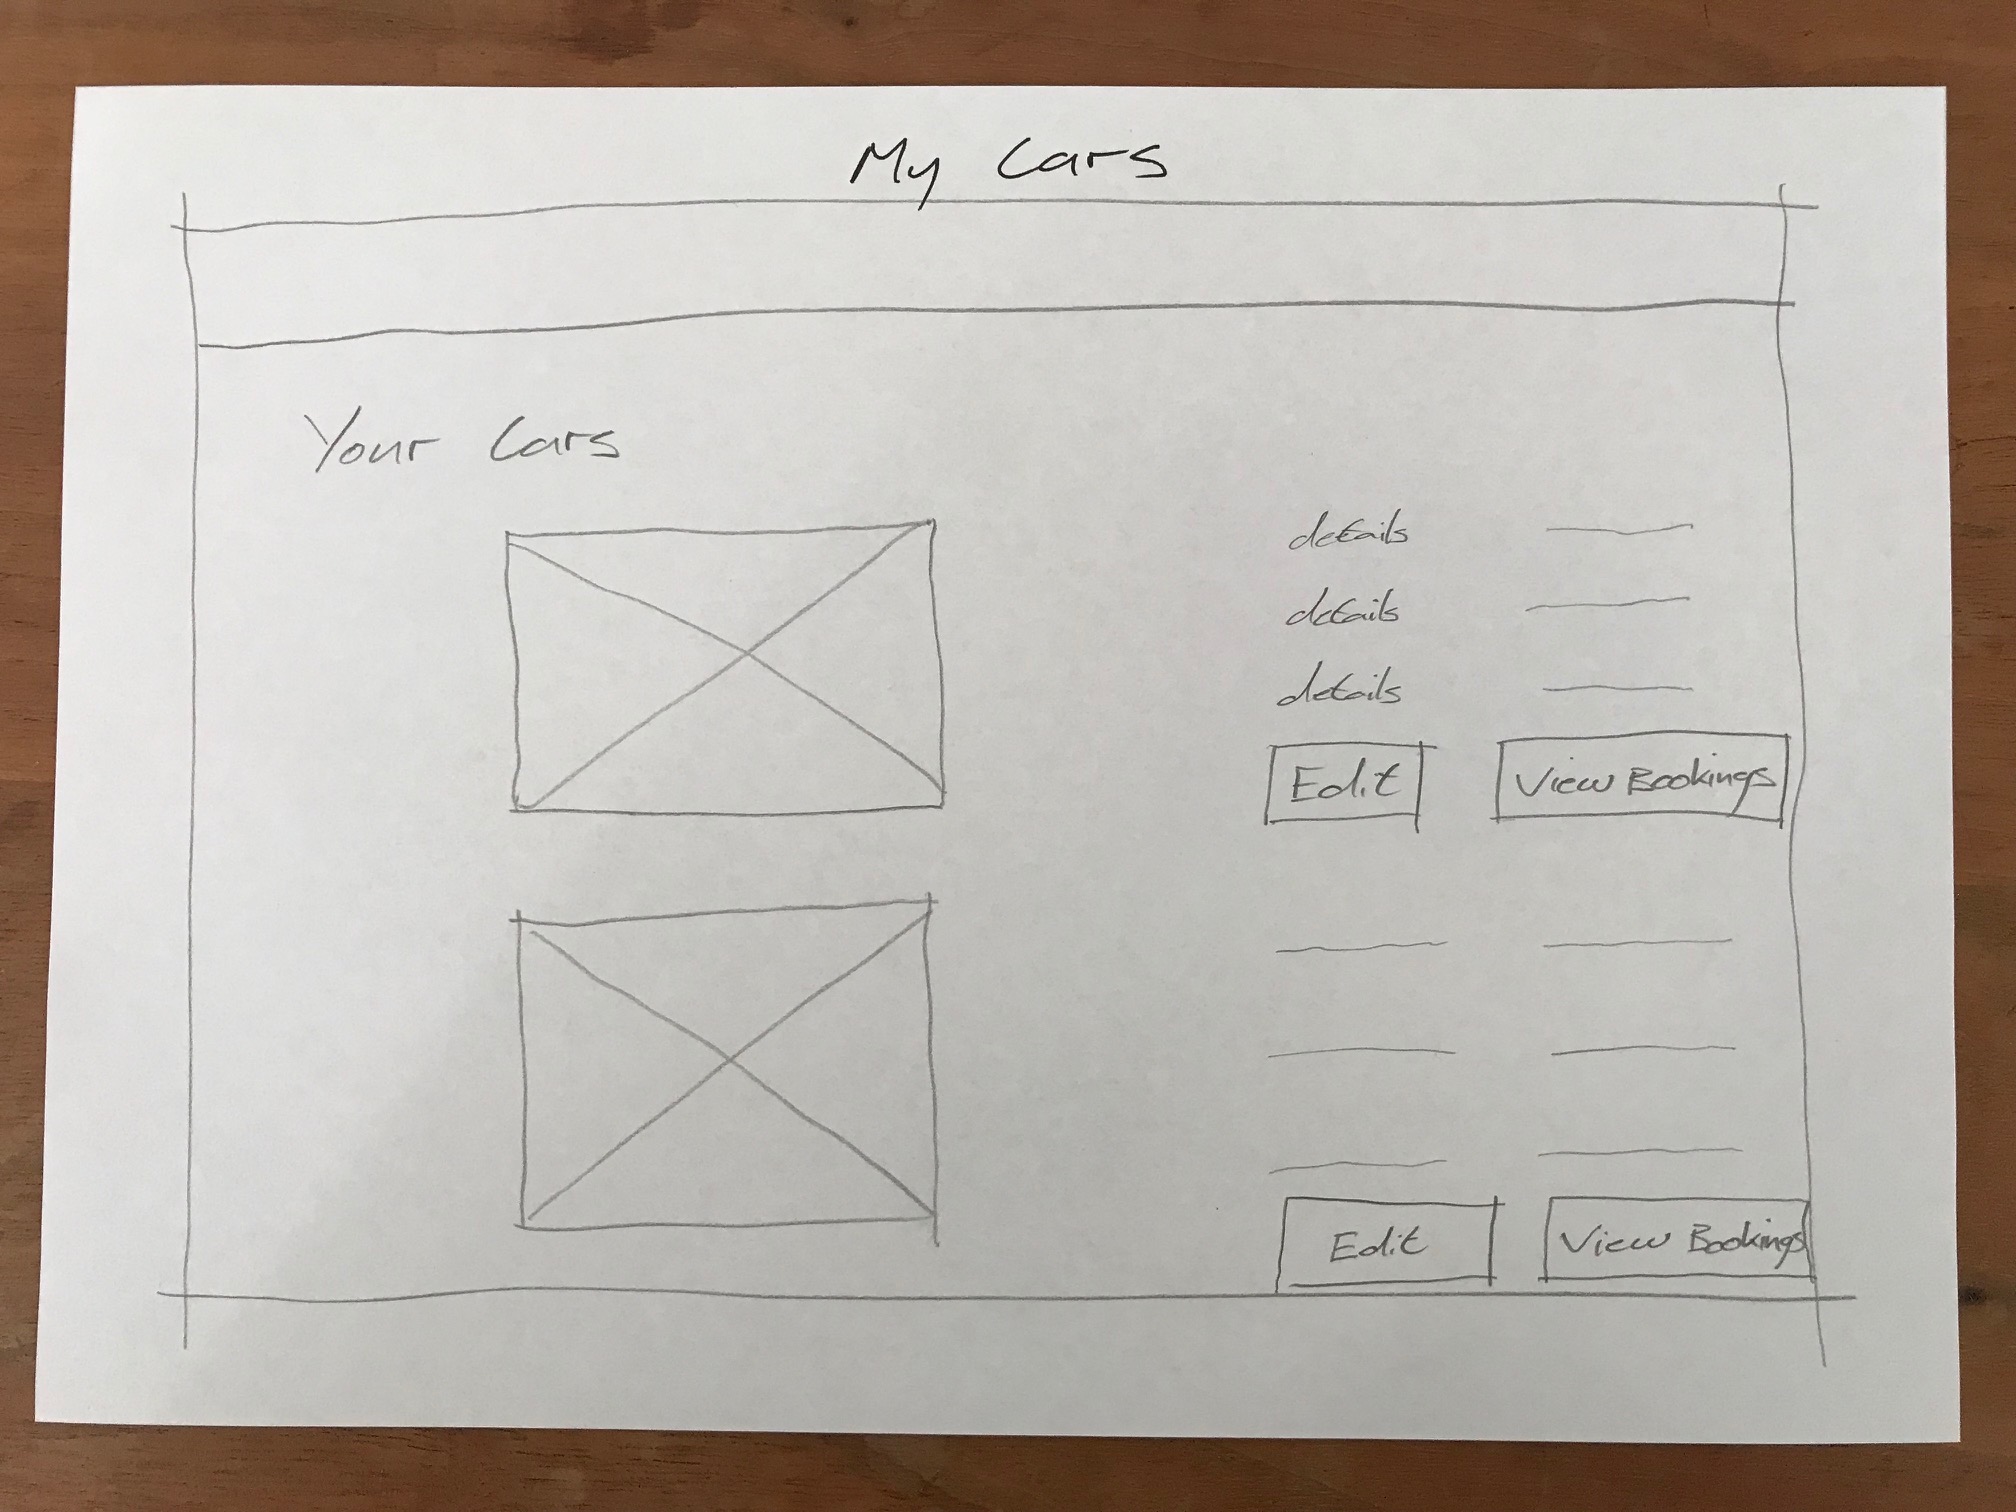 My Cars
Your Cars
details
details
details
Edit View Bookings
Edit View Bookings